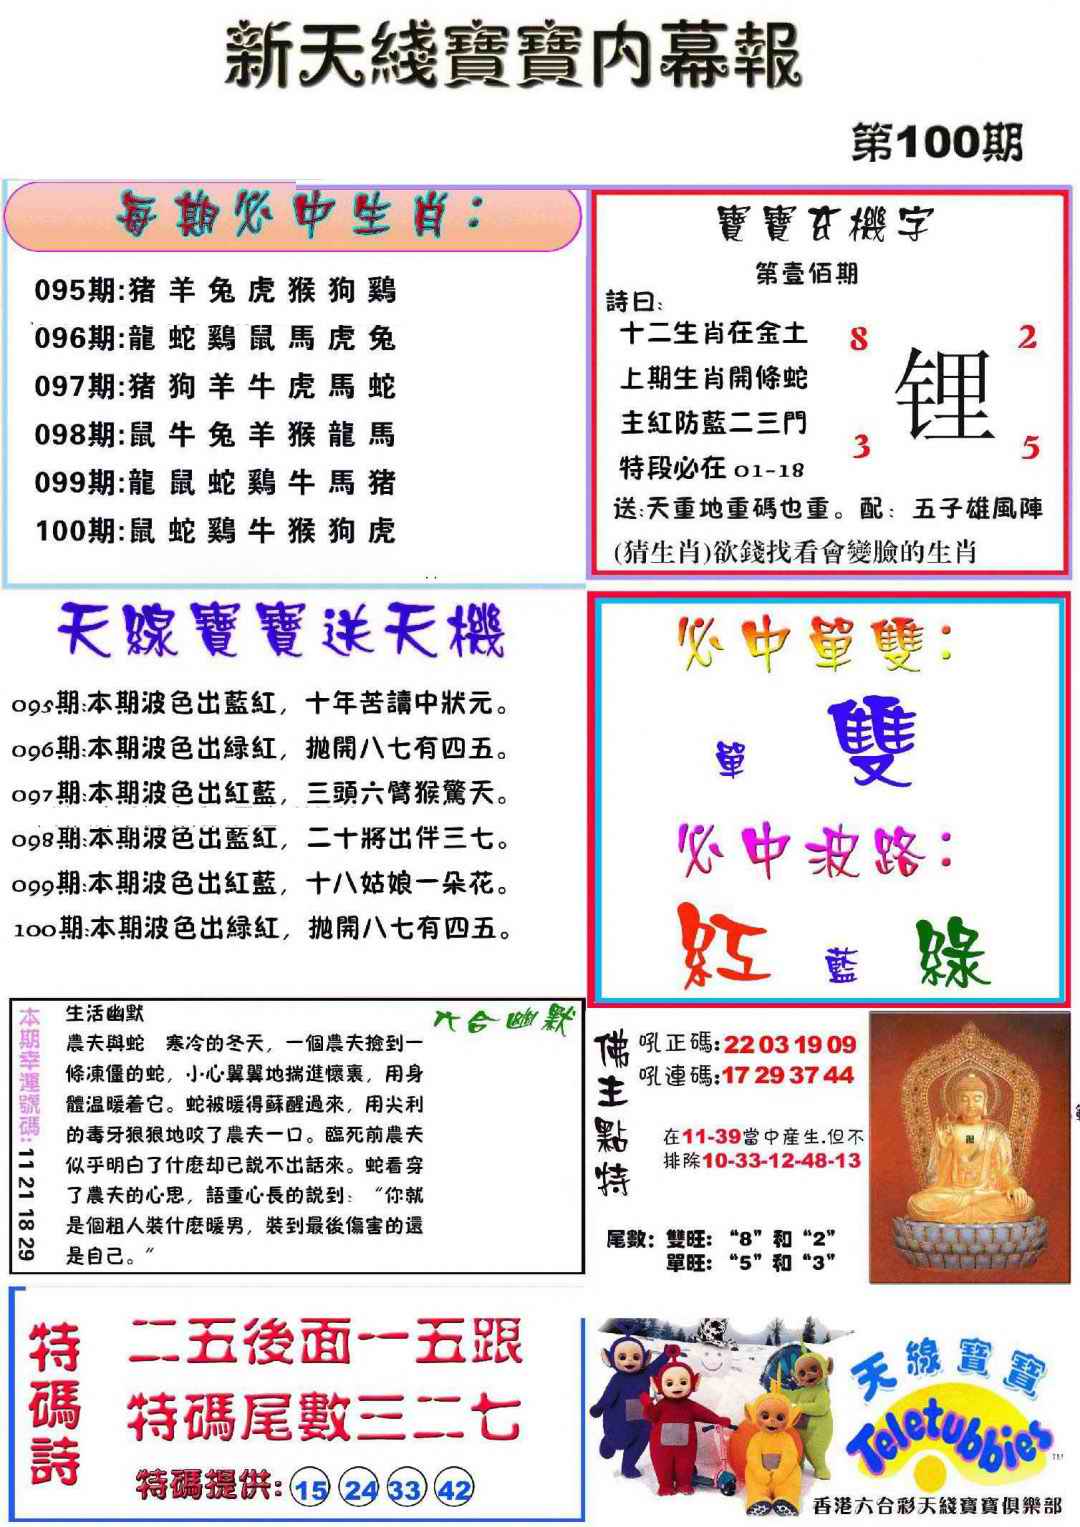 新天綫寶寶内幕報
第100期
每期必中生肖：
095期:猪羊兔虎猴狗鷄
096期:龍蛇鷄鼠馬虎兔
097期:猪狗羊牛虎馬蛇
098期:鼠牛兔羊猴龍馬
099期:龍鼠蛇鷄牛馬猪
100期:鼠蛇鷄牛猴狗虎
寶寶玄機字
第壹佰期
詩曰:
十二生肖在金土
上期生肖開條蛇
主紅防藍二三門
特段必在 01-18
8 2
锂
3 5
送:天重地重碼也重。配：五子雄風陣
(猜生肖)欲錢找看會變臉的生肖
天線寶寶送天機
095期:本期波色出藍紅，十年苦讀中狀元。
096期:本期波色出緑紅，抛開八七有四五。
097期:本期波色出紅藍，三頭六臂猴驚天。
098期:本期波色出藍紅，二十將出伴三七。
099期:本期波色出紅藍，十八姑娘一朵花。
100期:本期波色出緑紅，抛開八七有四五。
必中單雙：
單 雙
必中波路：
紅 藍 綠
本期幸運號碼:11 21 18 29
六合幽默
生活幽默
農夫與蛇　寒冷的冬天，一個農夫撿到一
條凍僵的蛇，小心翼翼地揣進懷裏，用身
體温暖着它。蛇被暖得蘇醒過來，用尖利
的毒牙狠狠地咬了農夫一口。臨死前農夫
似乎明白了什麽却已説不出話來。蛇看穿
了農夫的心思，語重心長的説到：“你就
是個粗人裝什麽暖男，裝到最後傷害的還
是自己。”
佛主點特
吼正碼:22 03 19 09
吼連碼:17 29 37 44
在11-39當中産生.但不
排除10-33-12-48-13
尾數：雙旺：“8”和“2”
單旺：“5”和“3”
特碼詩
二五後面一五跟
特碼尾數三二七
特碼提供: 15 24 33 42
天線寶寶
Teletubbies
TM
香港六合彩天綫寶寶俱樂部